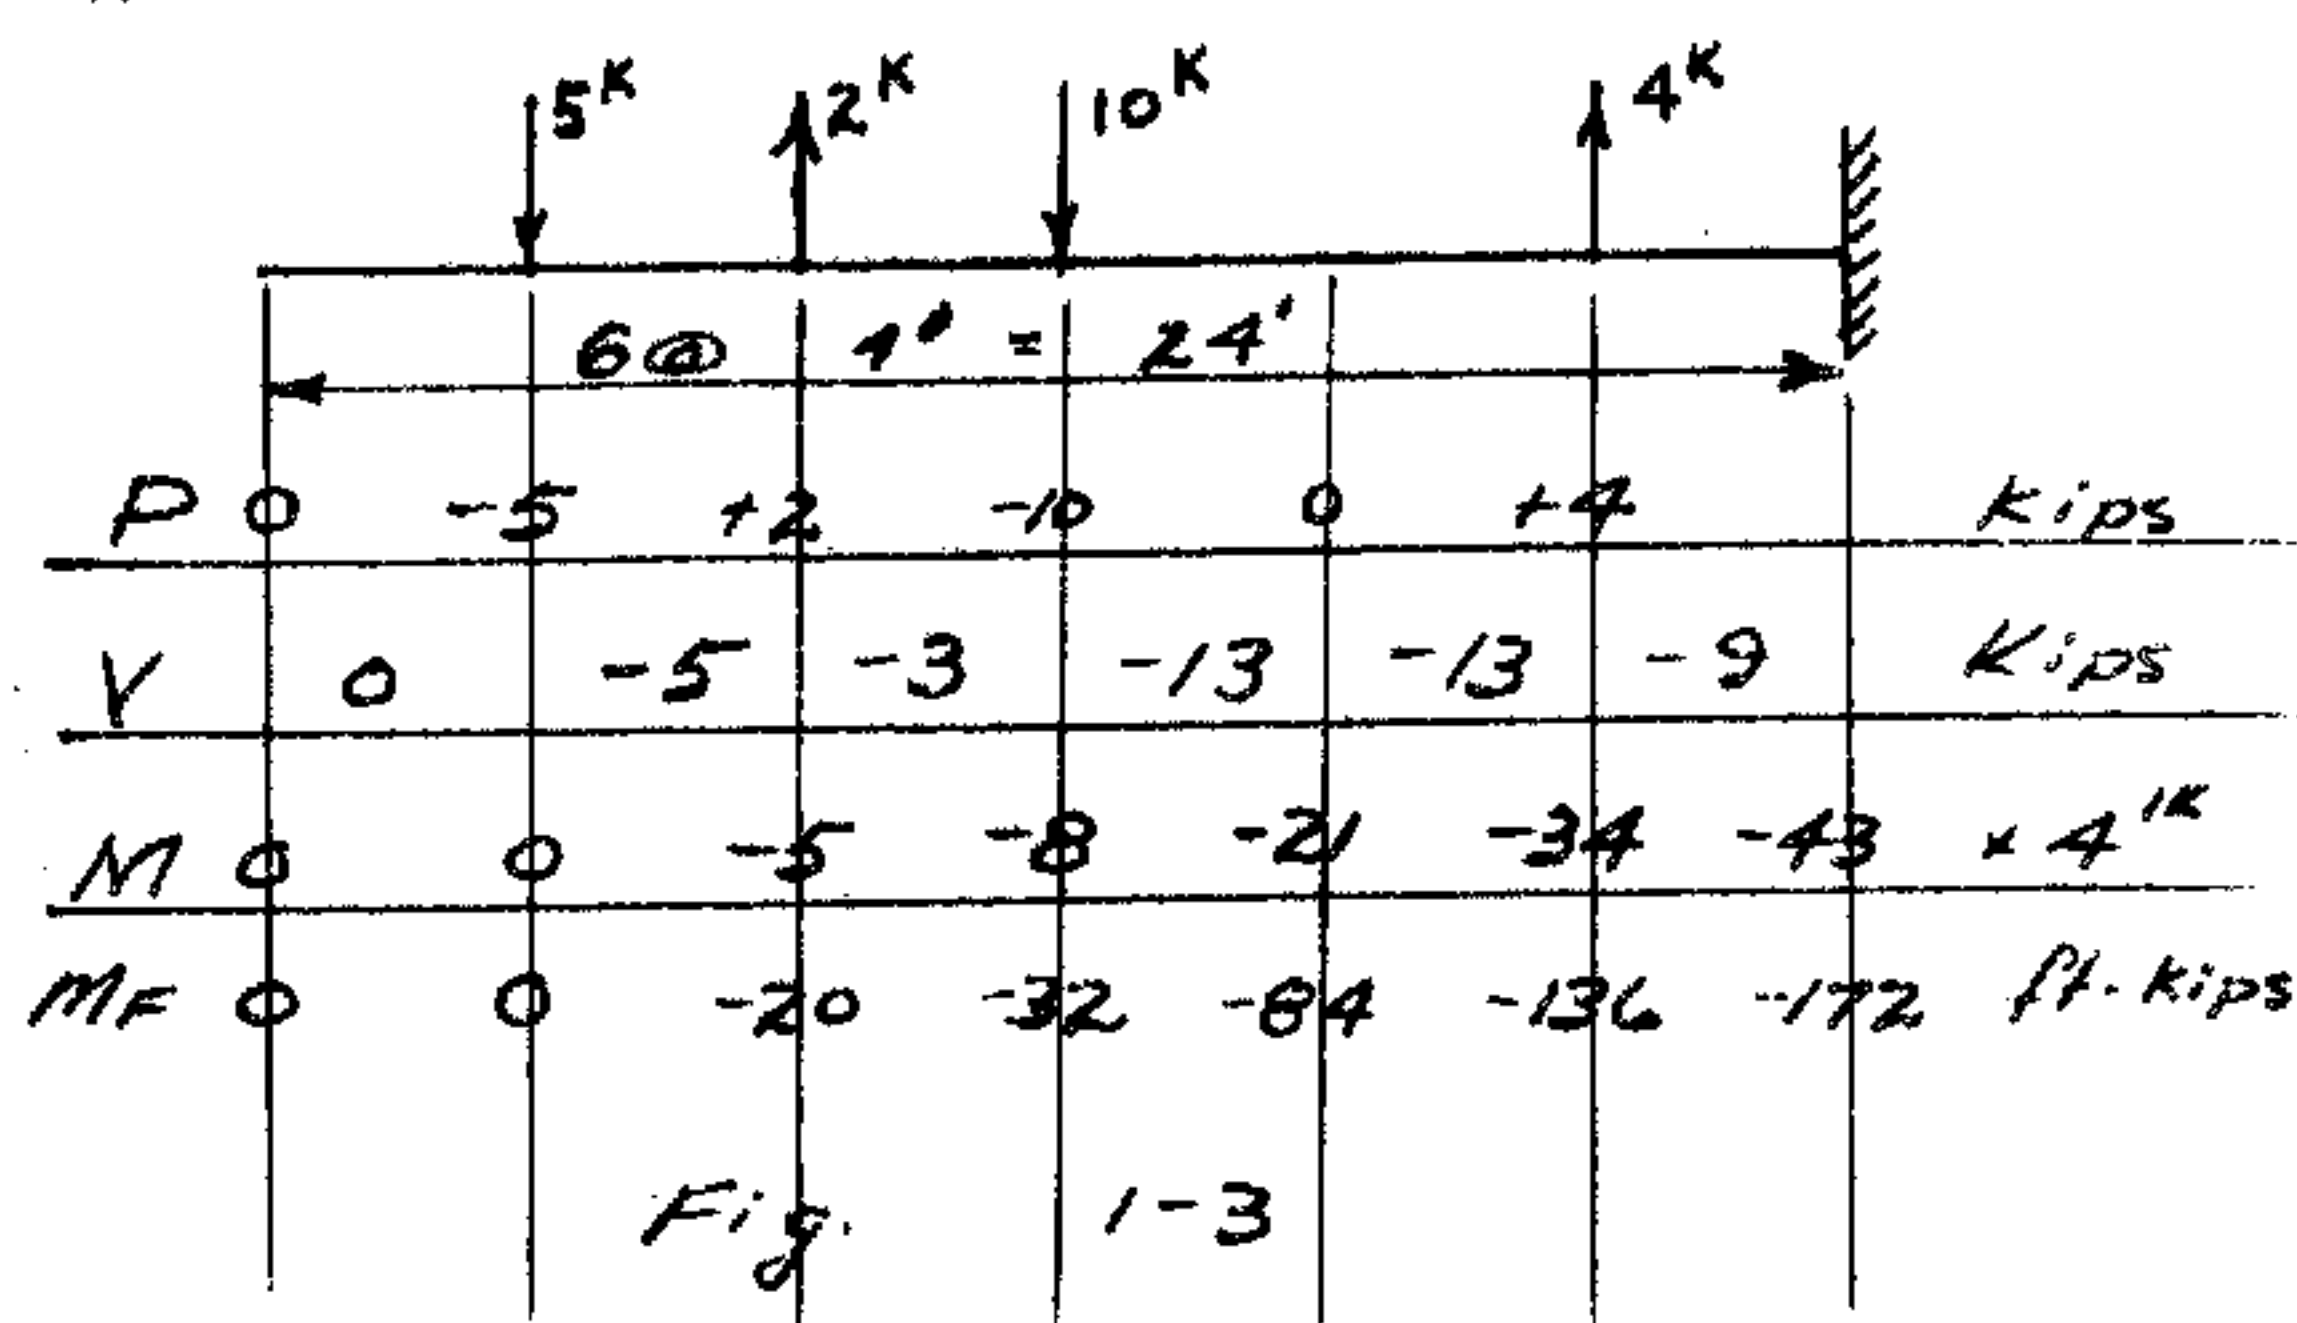 5K 2K 10K 4K
6@ 4' = 24'
P 0 -5 +2 -10 0 +4 Kips
V 0 -5 -3 -13 -13 -9 Kips
M 0 0 -5 -8 -21 -34 -43 x 4'K
MF 0 0 -20 -32 -84 -136 -172 ft. Kips
Fig. 1-3